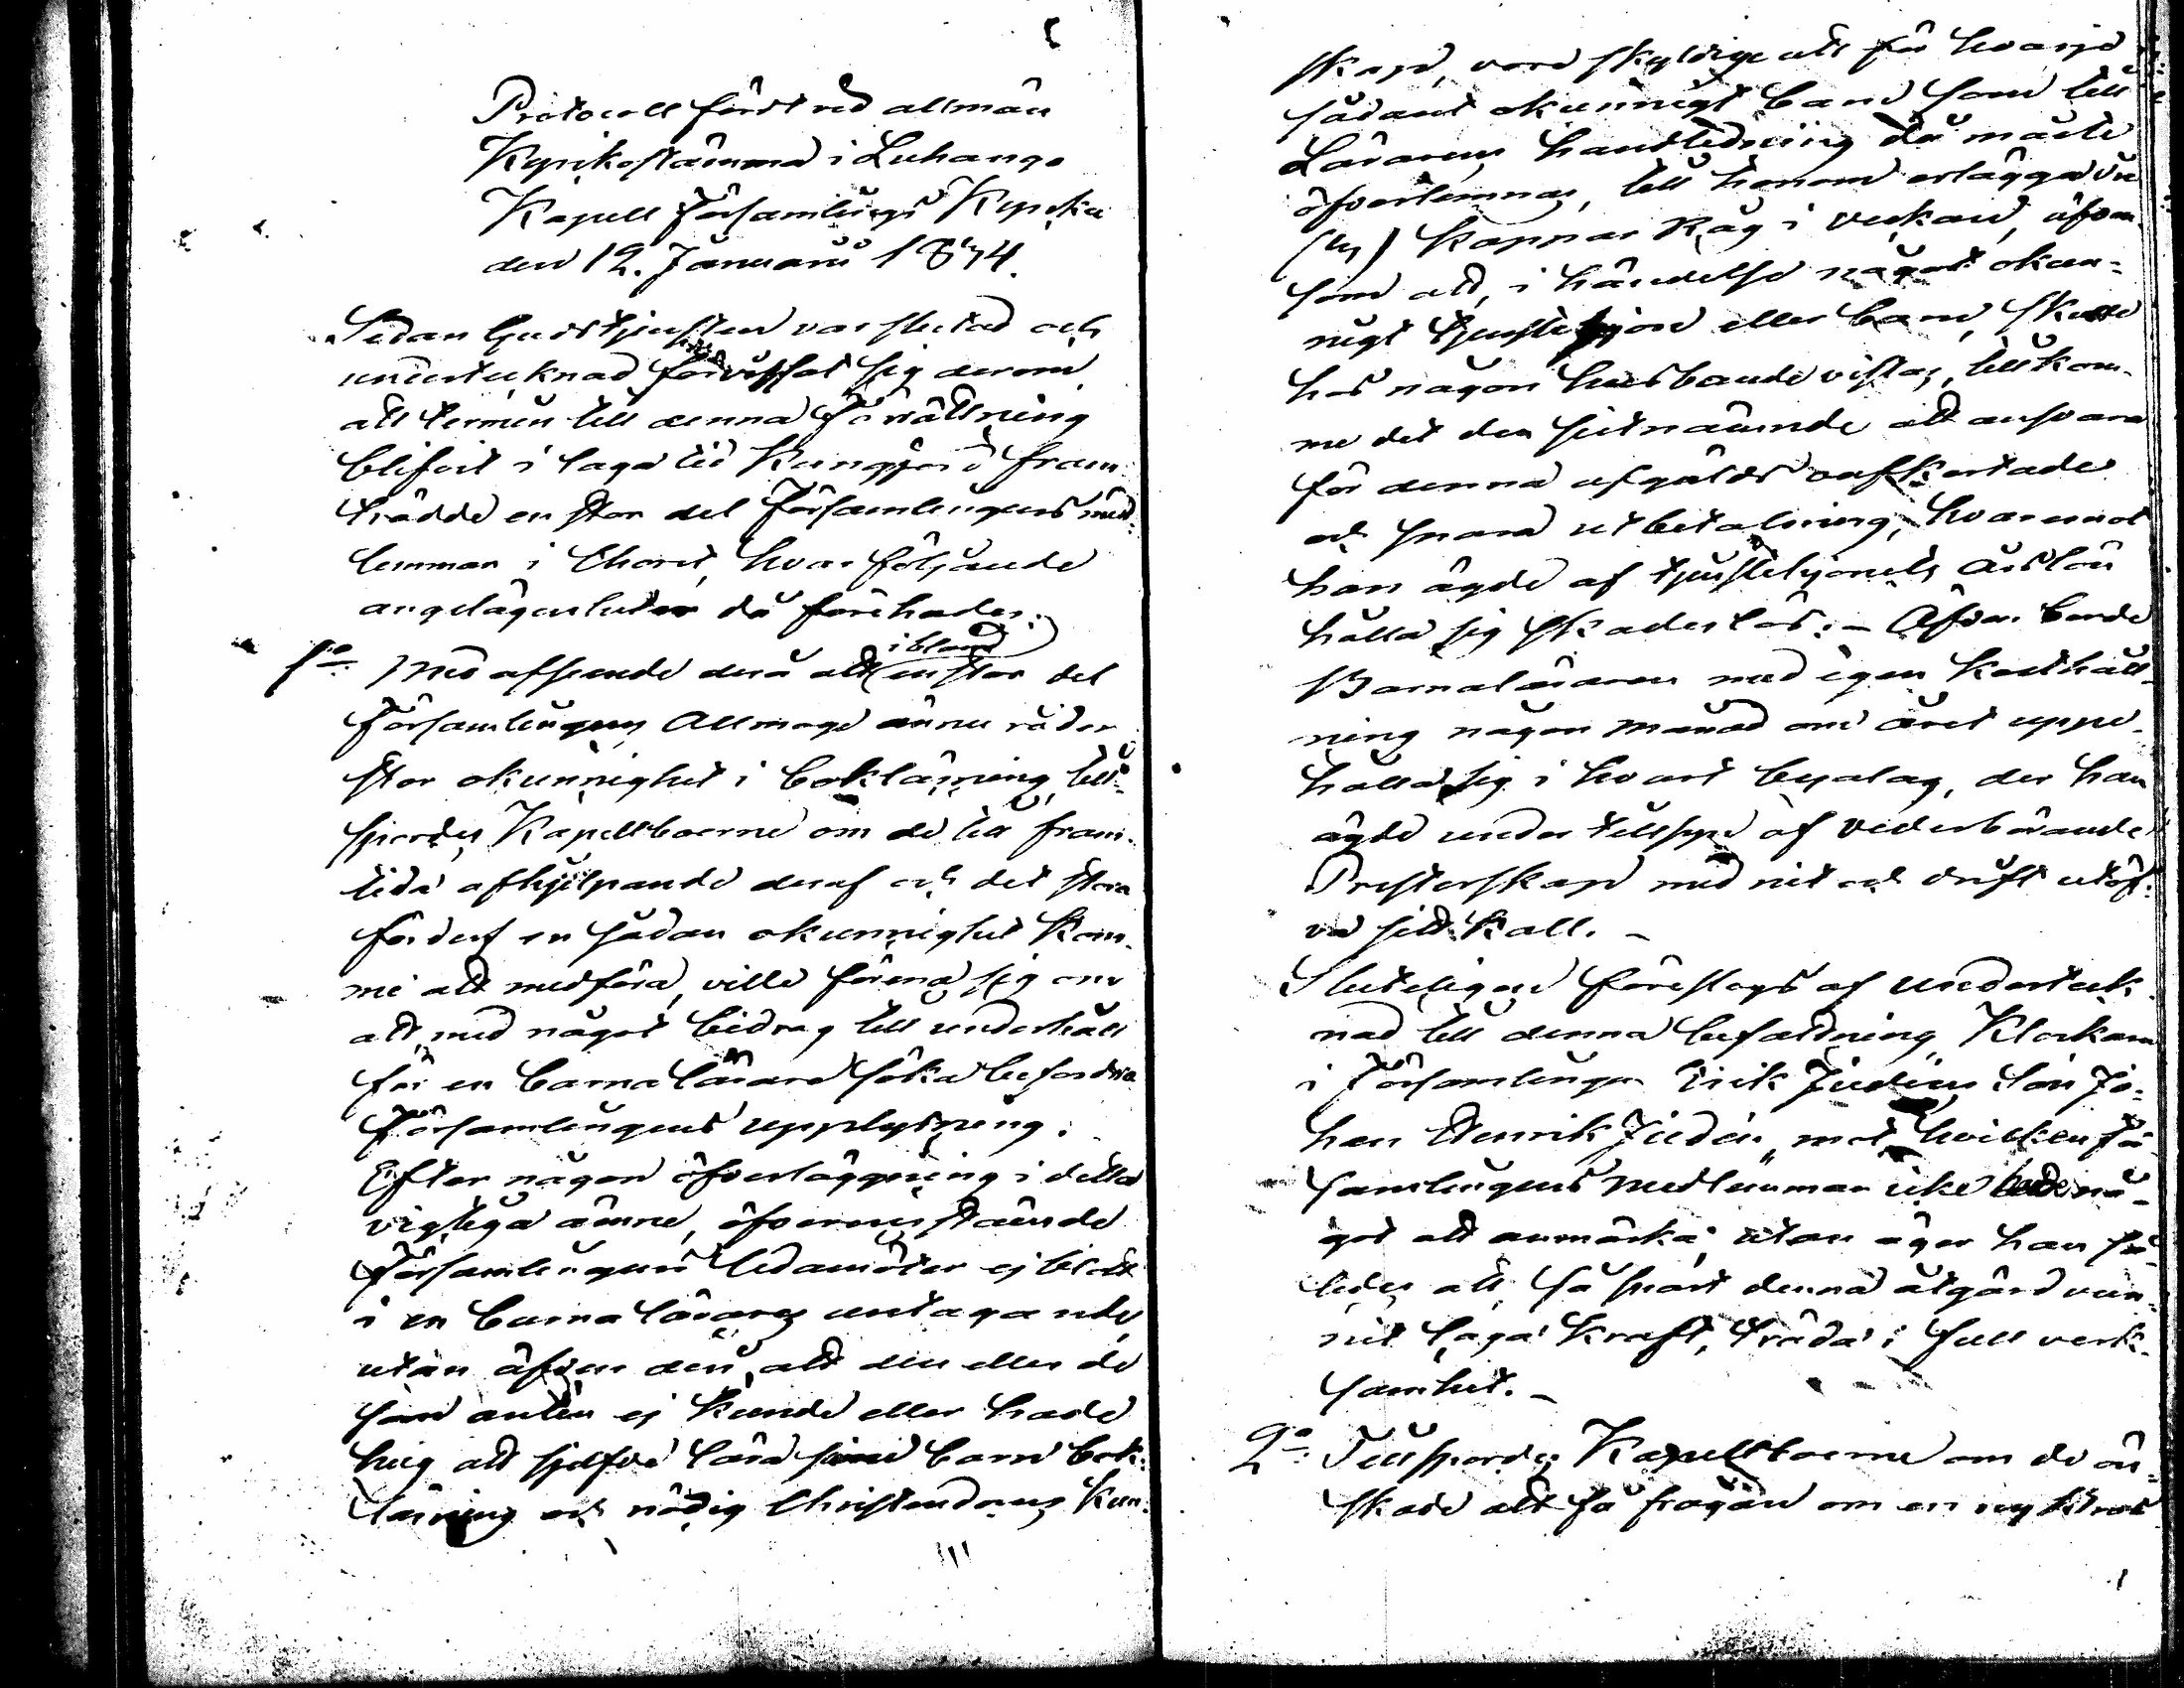 Protocoll fördt vid allmän
Kyrkostämma i Luhango
Kapell Församlings Kyrka
den 12. Januarii 1834.
Sedan Gudstjensten var slutad och
undertecknad förvissat sig derom
att termin till denna förrättning
blifvit i laga tid kungjord fram-
trädde en stor del Församlingens med-
lemmar i Choret, hvar följande
angelägenheter då förehades:
1o Med afseende derå att ibland en stor del
Församlingens Allmoge ännu råder
stor okunnighet i bokläsning, till-
spordes Kapellboerne om de till fram-
tida afhjelpande deraf och det stora
förderf en sådan okunnighet kom-
me att medföra, ville förena sig om
att med något bidrag till underhåll
för en barnalärare söka befordra
Församlingens upplysning.
Efter någon öfverläggning i detta
vigtiga ämne, öfverensstämde
Församlingens Ledamöter ej blott
i en barnalärares antagande,
utan äfven deri, att den eller de
som antin ej kunde eller hade
hug att sjelfve lära sina barn bok-
läsning och nödig Christendoms kun-
skap, vore skyldige att för hvarje
sådant okunnigt barn som till
Lärarens handledning då måste
öfverlemnas, till honom erlägga
kappar Råg i veckan, äfven
som att, i händelse något okun-
nigt tjenstehjon eller barn, skulle
hos någon husbonde vistas, tillkom-
me det den sistnämnde att ansvara
för denna afgälds oafkortade
och snara utbetalning, hvaremot
han ägde af tjenstehjonets årslön
hålla sig skadeslös. - Äfven borde
Barnaläraren med egen kosthåll-
ning någon månad om året uppe-
hålla sig i hvart byalag, der han
ägde under tillsyn af vederbörande
Presterskap med nit och drift utöf-
va sitt kall. -
Sluteligen föreslogs af underteck-
nad till denna befattning Klockaren
i Församlingen Erik Judins son Jo-
han Henrik Judin, mot hvilken För-
samlingens medlemmar icke hade nå-
got att anmärka, utan äger han så-
ledes att, så snart denna åtgärd vun-
nit laga kraft, träda i full verk-
samhet. -
2o Tillspordes Kapellboerne om de ön-
skade att få frågan om en ny